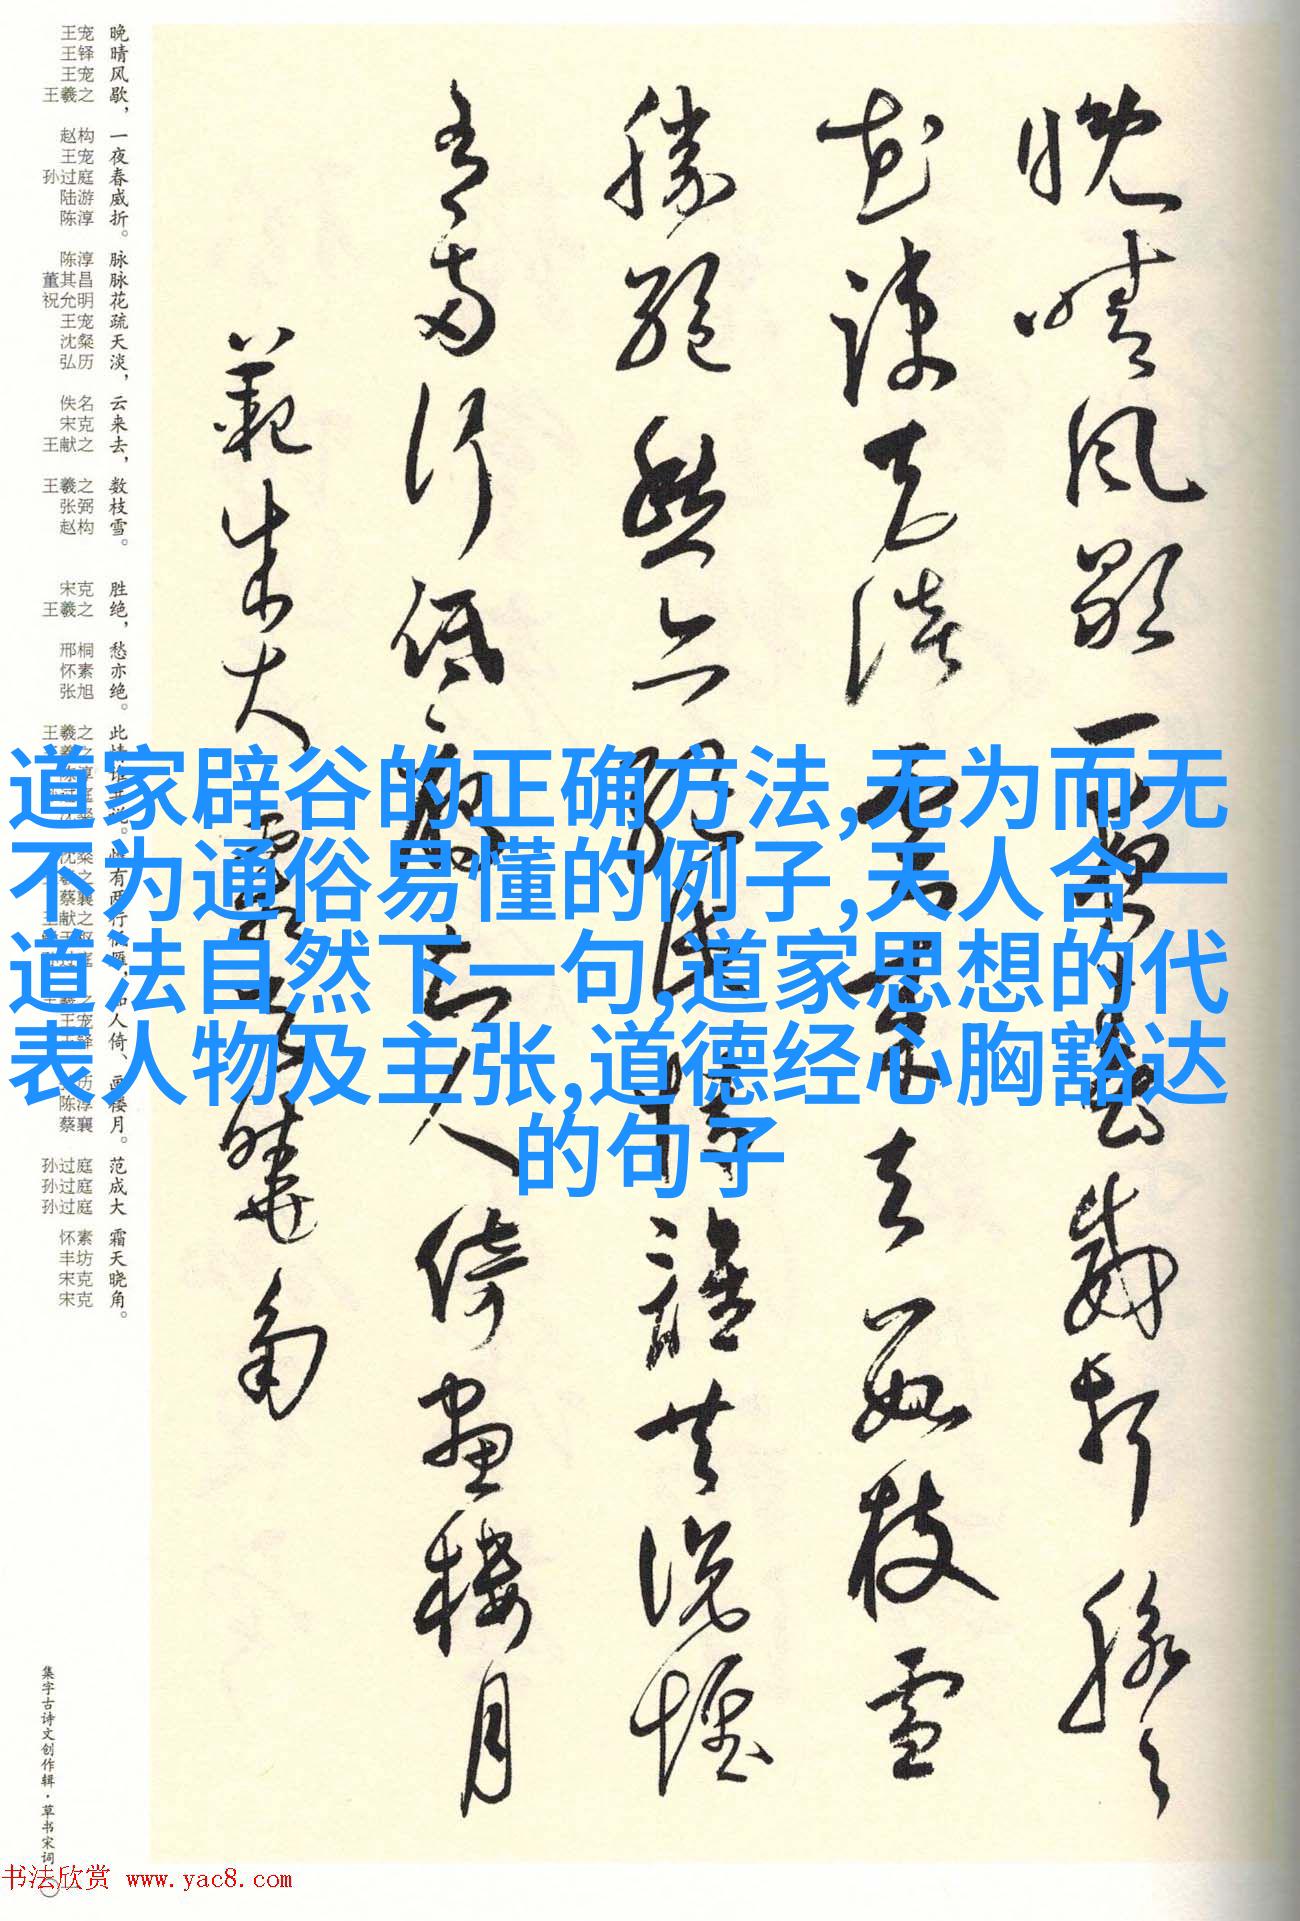 道家辟谷的正确方法,无为而无
不为通俗易懂的例子,天人合一
道法自然下一句,道家思想的代
表人物及主张,道德经心胸豁达
的句子
晚晴风歇一夜春威折脉脉
花疏天淡云来去数枝雪
胜绝愁亦绝此情谁共说惟
有两行低雁人倚画楼月
范成大霜天晓角
晚晴风歇，
一夜春威折。
脉脉花疏天淡，
云来去，
数枝雪。
胜绝，
愁亦绝。
范成大
霜天晓角。
王宠
王铎
王宠
王羲之
赵构
王宠
孙过庭
陆游
陈淳
陈淳
董其昌
祝允明
王宠
沈粲
弘历
佚名
宋克
王献之
王羲之
张弼
赵构
宋克
王羲之
邢桐
怀素
张旭
王羲之
陈淳
蔡襄
孙过庭
孙过庭
孙过庭
怀素
丰坊
宋克
宋克
集字古诗文创作辑·草书宋词
书法欣赏 www.yac8.com